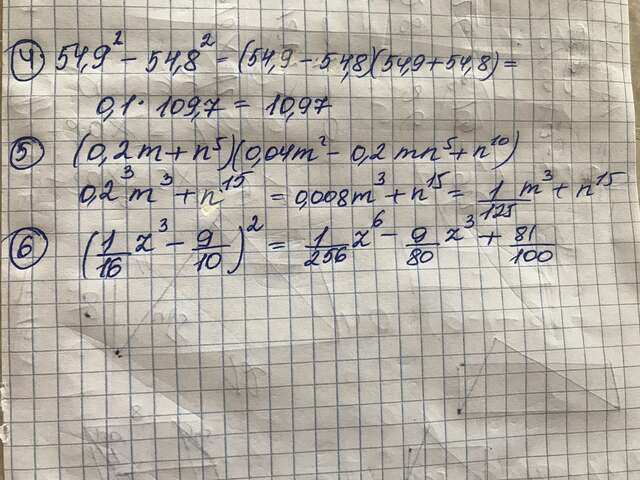 ④ 54,9² - 54,8² - (54,9 - 54,8)(54,9 + 54,8) =
0,1 · 109,7 = 10,97
⑤ (0,2m + n⁵)(0,04m² - 0,2mn⁵ + n¹⁰)
0,2³m³ + n¹⁵ = 0,008m³ + n¹⁵ = 1/125 m³ + n¹⁵
⑥ (1/16 z³ - 9/10)² = 1/256 z⁶ - 9/80 z³ + 81/100